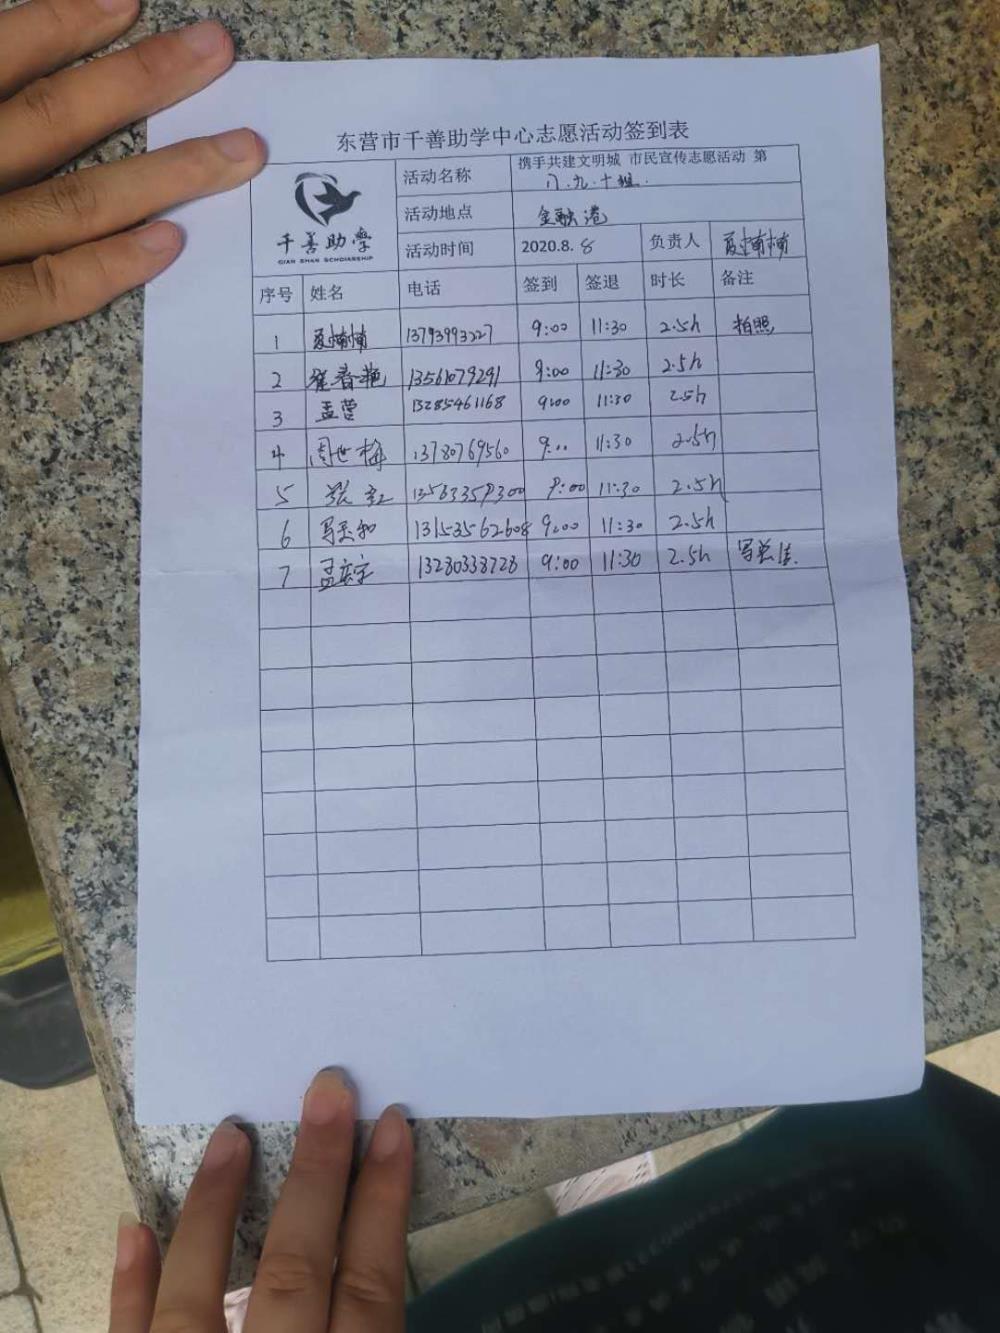 东营市千善助学中心志愿活动签到表
千善助學
QIAN SHAN SCHOLARSHIP
活动名称 携手共建文明城 市民宣传志愿活动 第
八.九.十组.
活动地点 金融港
活动时间 2020.8.8 负责人 夏楠楠
序号 姓名 电话 签到 签退 时长 备注
1 夏楠楠 13793993227 9:00 11:30 2.5h 拍照
2 崔春艳 13561079291 9:00 11:30 2.5h
3 孟营 13285461168 9:00 11:30 2.5h
4 周世梅 13780769560 9:00 11:30 2.5h
5 张红 13563359300 9:00 11:30 2.5h
6 13153562608 9:00 11:30 2.5h
7 13280338728 9:00 11:30 2.5h